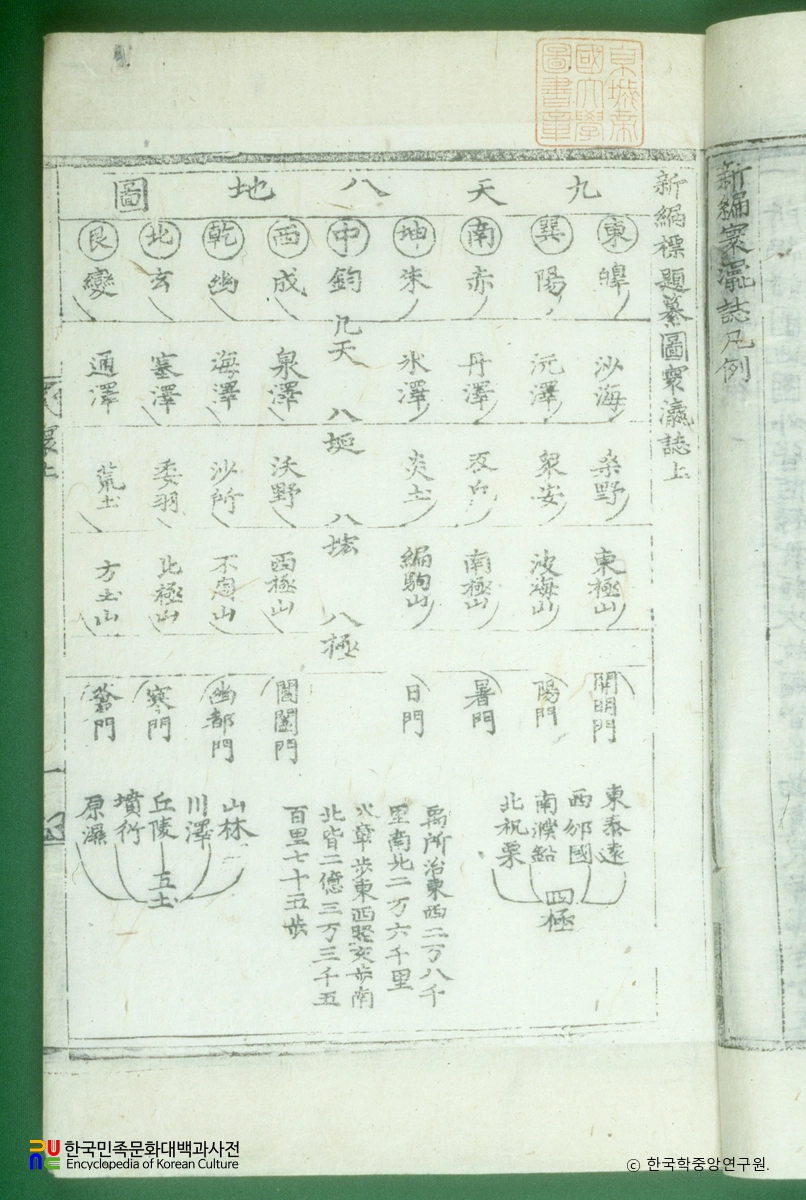 新編寰瀛誌凡例
京城帝
國大學
圖書章
新編標題纂圖寰瀛誌上
九天八地圖
東 巽 南 坤 中 西 乾 北 艮
皞 陽 赤 朱 鈞 成 幽 玄 變
九天
沙海 沅澤 丹澤 氷澤 泉澤 海澤 塞澤 通澤
八埏
桑野 衆安 炎土 沃野 沙所 委羽 荒土
八紘
東極山 波海山 南極山 編駒山 西極山 不周山 北極山 方土山
八極
開明門 陽門 暑門 日門 閶闔門 幽都門 寒門 蒼門
東泰遠
西邠國
南濮鈆
北祝栗
四極
禹所治東西二万八千
里南北二万六千里
大章步東西竪亥步南
北皆二億三万三千五
百里七十五步
山林
川澤
丘陵
墳衍
原濕
五土
寰上
一
한국민족문화대백과사전
Encyclopedia of Korean Culture
© 한국학중앙연구원.